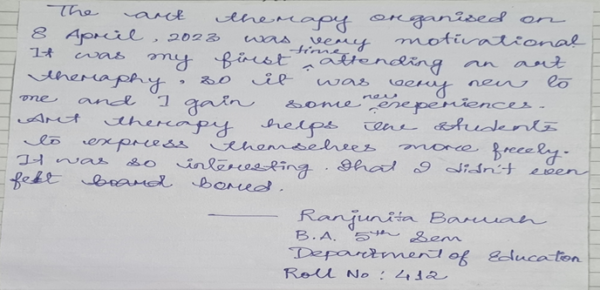 The art therapy organised on
8 April, 2023 was very motivational
It was my first time attending an art
theraphy, so it was very new to
me and I gain some new experiences.
Art therapy helps the students
to express themselves more freely.
It was so interesting. that I didn't even
felt board bored.
Ranjunita Baruah
B.A. 5th Sem
Department of Education
Roll No : 412